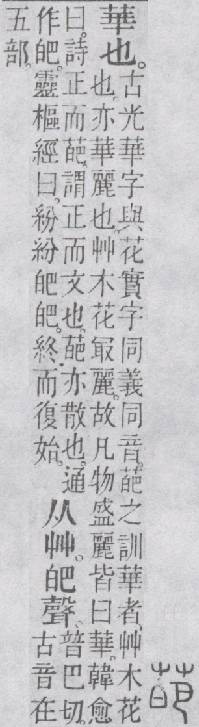 葩
華也。
古光華字與花實字同義同音。葩之訓華者、艸木花
也。亦華麗也。艸木花㝡麗。故凡物盛麗皆曰華。韓愈
曰。詩正而葩。謂正而文也。葩亦散也。通
作皅。靈樞經曰。紛紛皅皅。終而復始。
从艸。皅聲。
普巴切。
古音在
五部。